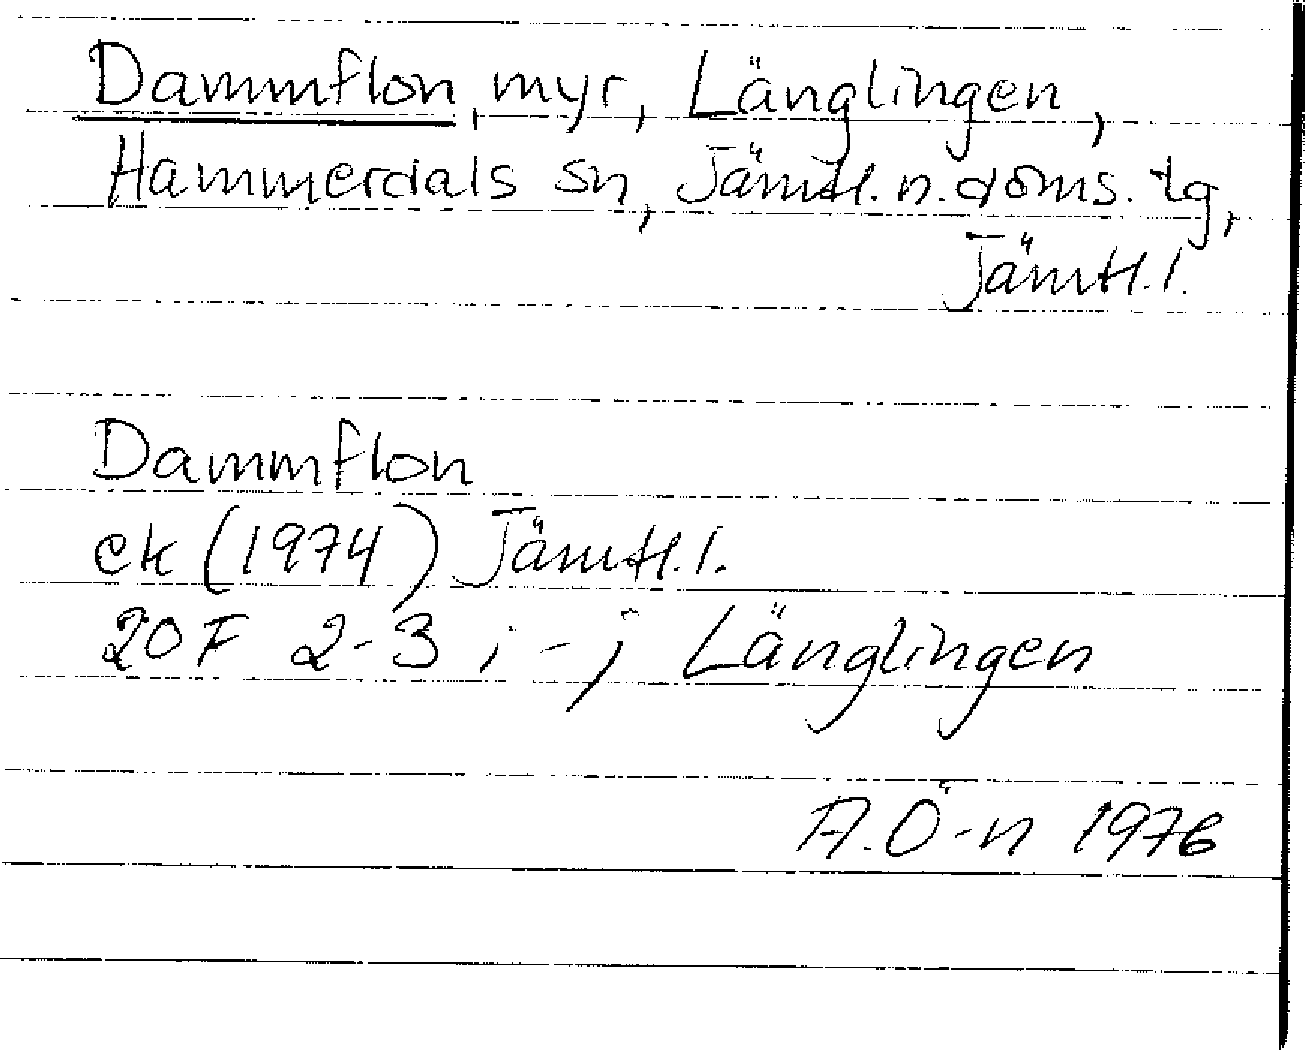 Dammflon, myr, Länglingen,
Hammerdals sn, Jämtl. n. doms. tg,
Jämtl. l.
Dammflon
ek (1974) Jämtl. l.
20F 2-3 i-j Länglingen
A. Ö-n 1976